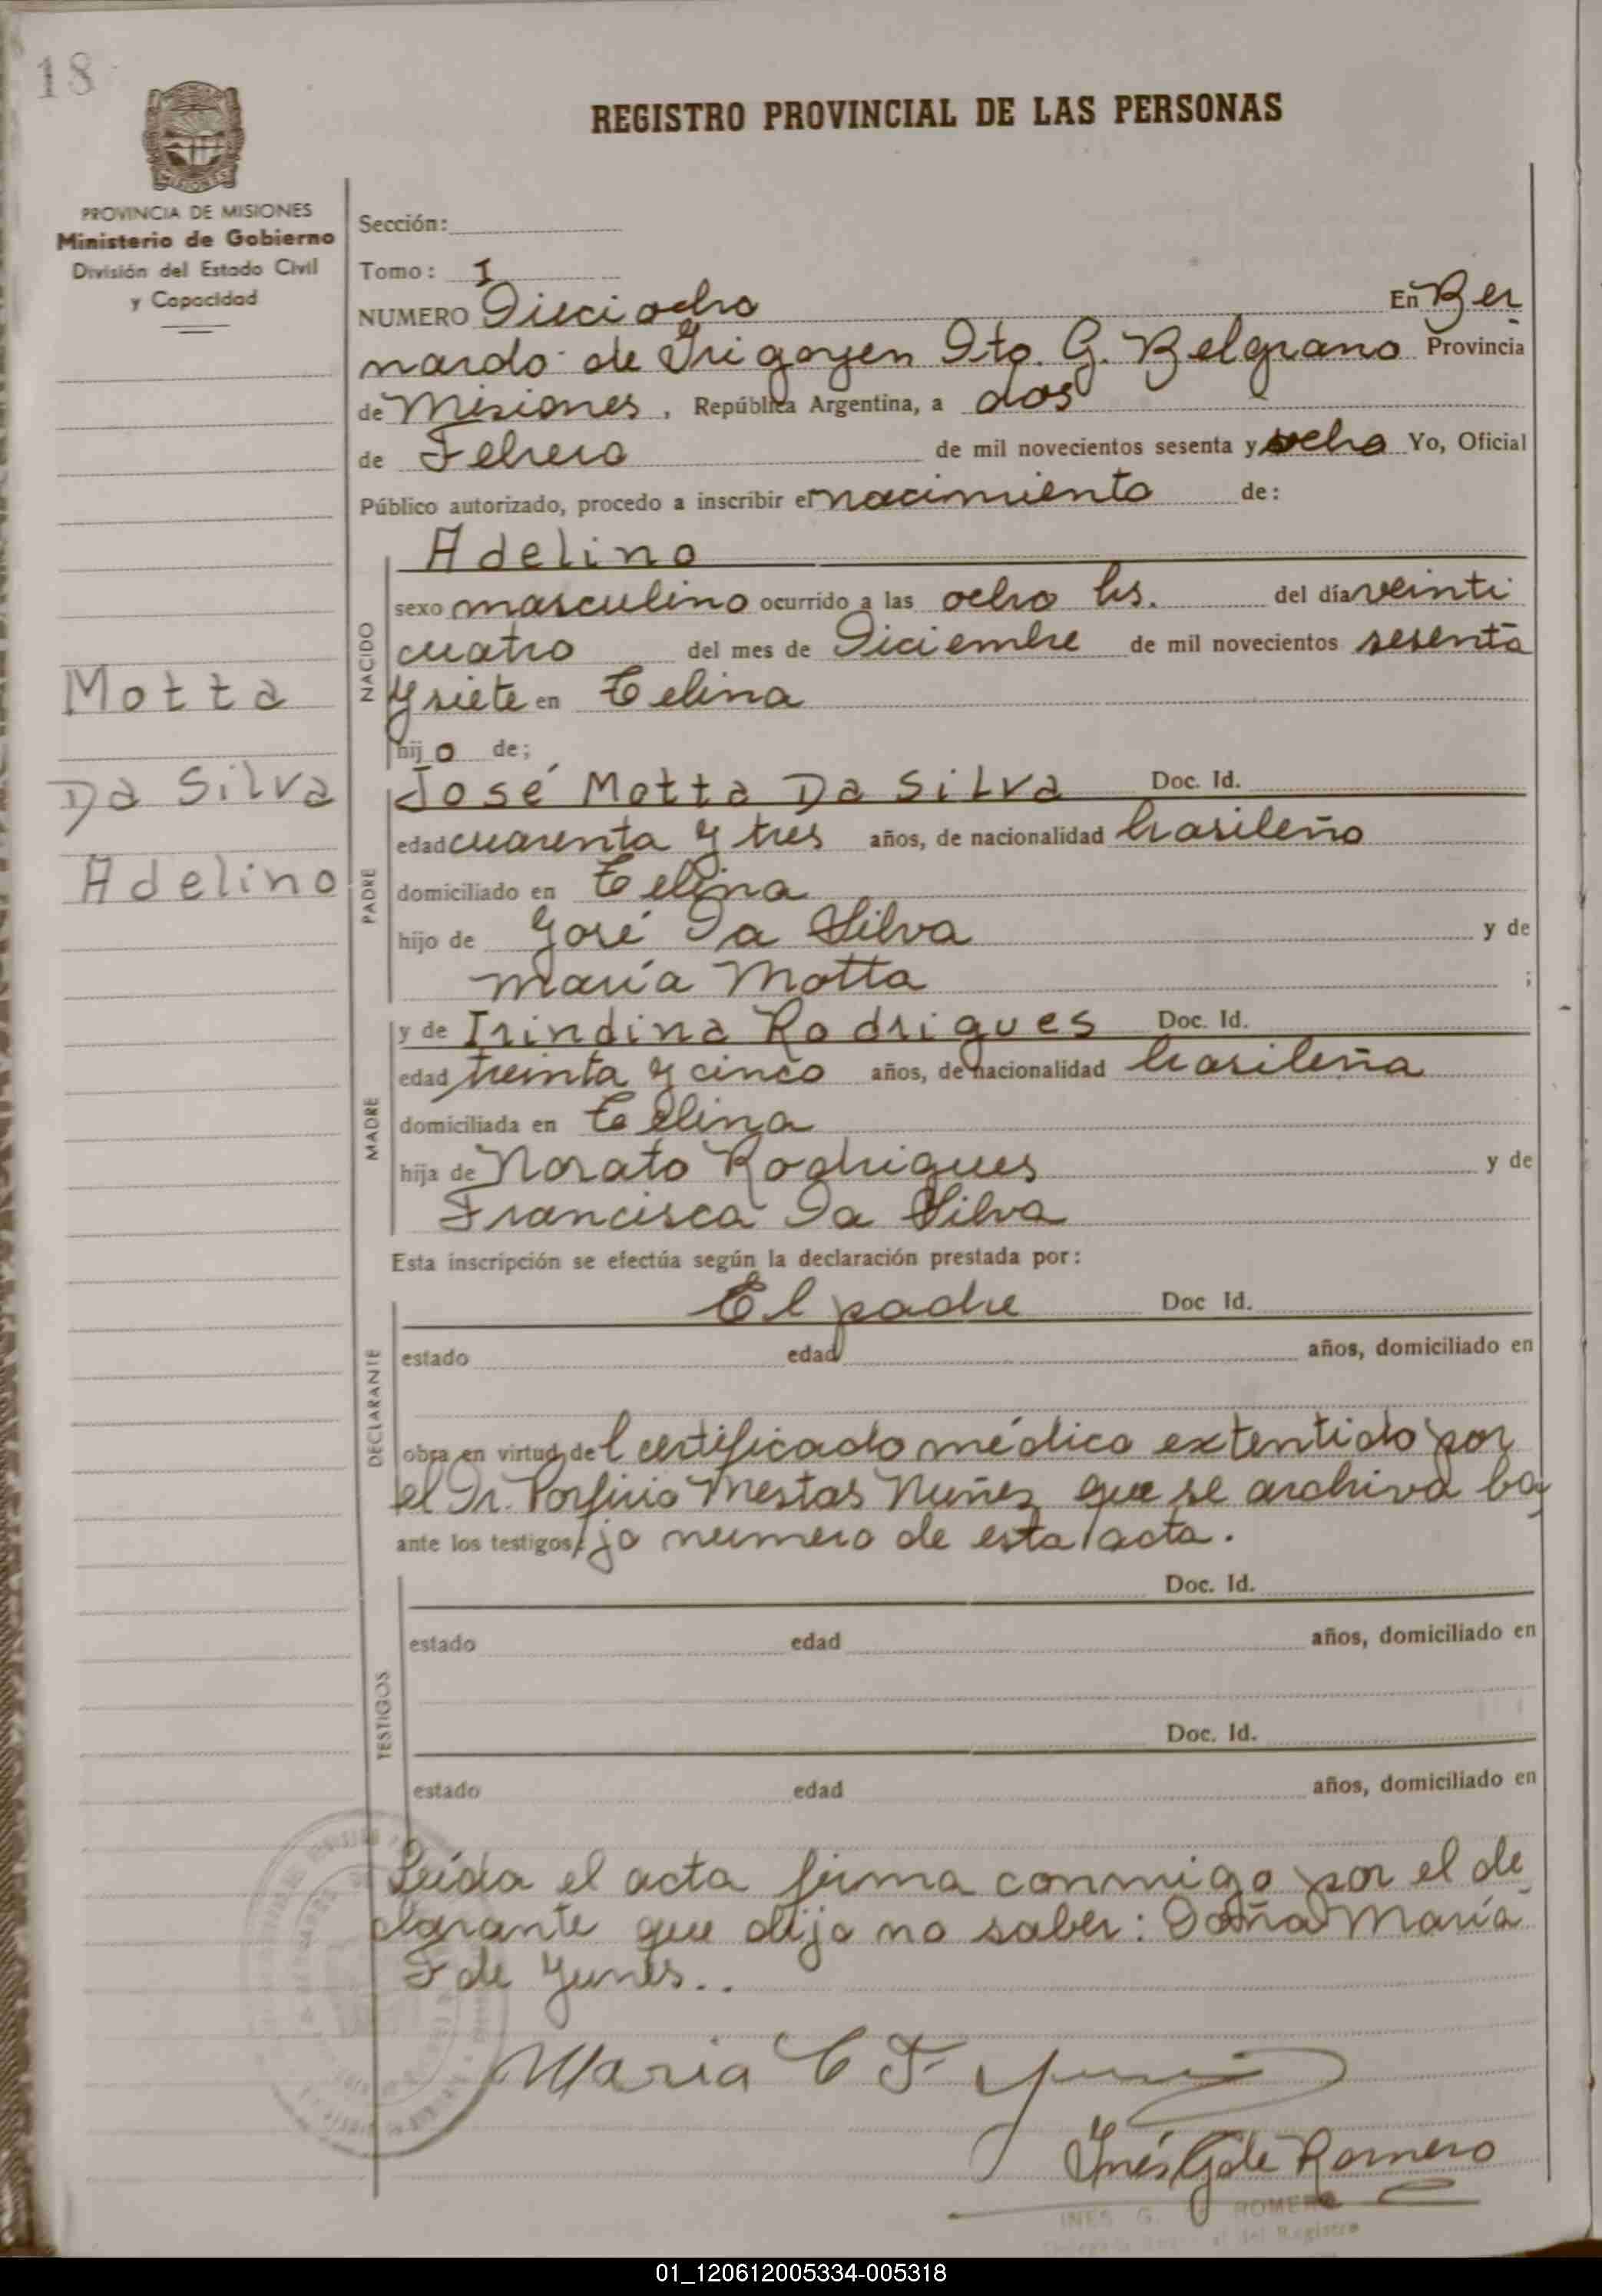 18
REGISTRO PROVINCIAL DE LAS PERSONAS
MISIONES
PROVINCIA DE MISIONES
Ministerio de Gobierno
División del Estado Civil
y Capacidad
Sección:
Tomo: I
NUMERO Dieciocho En Ber
nardo de Irigoyen Dto. G. Belgrano Provincia
de Misiones, República Argentina, a dos
de Febrero de mil novecientos sesenta y ocho Yo, Oficial
Público autorizado, procedo a inscribir el nacimiento de:
NACIDO
Adelino
sexo masculino ocurrido a las ocho hs. del día veinti
cuatro del mes de Diciembre de mil novecientos sesenta
y siete en Celina
hijo de;
Motta
Da Silva
Adelino
PADRE
José Motta Da Silva Doc. Id.
edad cuarenta y tres años, de nacionalidad brasileño
domiciliado en Celina
hijo de José Da Silva y de
María Motta ;
MADRE
y de Irindina Rodrigues Doc. Id.
edad treinta y cinco años, de nacionalidad brasileña
domiciliada en Celina
hija de Norato Rodrigues y de
Francisca Da Silva
Esta inscripción se efectúa según la declaración prestada por:
DECLARANTE
El padre Doc Id.
estado edad años, domiciliado en
obra en virtud del certificado médico extentido por
el Dr. Porfirio Mestas Nuñez que se archiva ba
ante los testigos: jo numero de esta acta.
TESTIGOS
Doc. Id.
estado edad años, domiciliado en
Doc. Id.
estado edad años, domiciliado en
Leída el acta firma conmigo por el de
clarante que dijo no saber: Doña María
F de Yunis..
Maria C F Yunis
Inés G de Romero
INES G. DE ROMERO